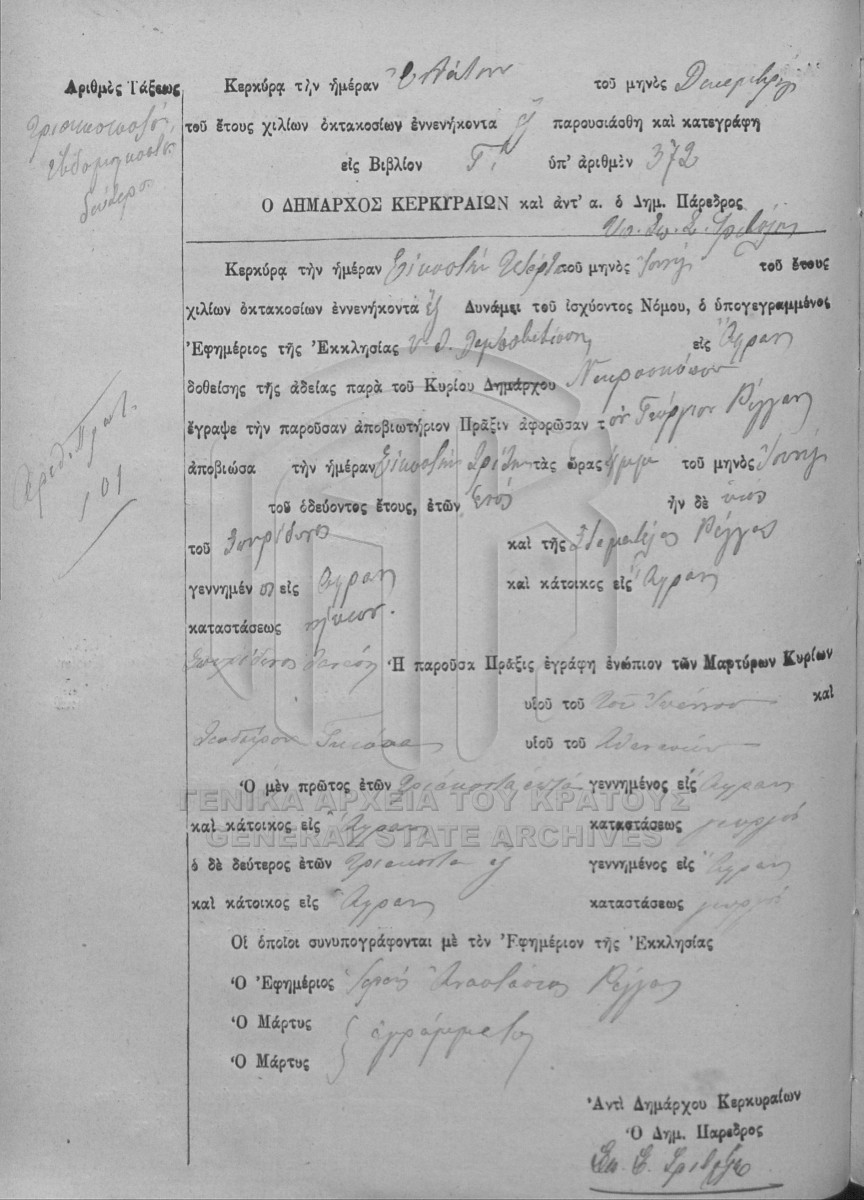 Ἀριθμὸς Τάξεως
Τριακοσιοστός
ἑβδομηκοστὸς
δεύτερος
Κερκύρᾳ τὴν ἡμέραν ἐνάτην τοῦ μηνὸς Δεκεμβρίου
τοῦ ἔτους χιλίων ὀκτακοσίων ἐννενήκοντα ἓξ παρουσιάσθη καὶ κατεγράφη
εἰς Βιβλίον Γ' ὑπ' ἀριθμὸν 372
Ὁ ΔΗΜΑΡΧΟΣ ΚΕΡΚΥΡΑΙΩΝ καὶ ἀντ' α. ὁ Δημ. Πάρεδρος
Κερκύρᾳ τὴν ἡμέραν Εἰκοστὴν τετάρτην τοῦ μηνὸς Ἰουνίου τοῦ ἔτους
χιλίων ὀκτακοσίων ἐννενήκοντα ἓξ Δυνάμει τοῦ ἰσχύοντος Νόμου, ὁ ὑπογεγραμμένος
Ἐφημέριος τῆς Ἐκκλησίας εἰς Ἄγραν
δοθείσης τῆς ἀδείας παρὰ τοῦ Κυρίου Δημάρχου Νεκροσκόπου
ἔγραψε τὴν παροῦσαν ἀποβιωτήριον Πρᾶξιν ἀφορῶσαν τὸν Γεώργιον Ρίγγαν
ἀποβιώσα τὴν ἡμέραν Εἰκοστὴν τρίτην τὰς ὥρας τοῦ μηνὸς Ἰουνίου
Ἀριθ. Πρωτ.
101
τοῦ ὁδεύοντος ἔτους, ἐτῶν ἑνός ἦν δὲ υἱὸς
τοῦ Σπυρίδωνος καὶ τῆς Σταματέλας Ρίγγα
γεννημένος εἰς Ἄγραν καὶ κάτοικος εἰς Ἄγραν
καταστάσεως νήπιον.
Σπυρίδωνος Ἡ παροῦσα Πρᾶξις ἐγράφη ἐνώπιον τῶν Μαρτύρων Κυρίων
υἱοῦ τοῦ ποτὲ Ἰωάννου καὶ
Θεοδώρου υἱοῦ τοῦ Ἀθανασίου
Ὁ μὲν πρῶτος ἐτῶν τριάκοντα ἑπτὰ γεννημένος εἰς Ἄγραν
ΓΕΝΙΚΑ ΑΡΧΕΙΑ ΤΟΥ ΚΡΑΤΟΥΣ
καὶ κάτοικος εἰς Ἄγραν καταστάσεως γεωργοῦ
GENERAL STATE ARCHIVES
ὁ δὲ δεύτερος ἐτῶν τριάκοντα ἓξ γεννημένος εἰς Ἄγραν
καὶ κάτοικος εἰς Ἄγραν καταστάσεως γεωργοῦ
Οἱ ὁποῖοι συνυπογράφονται μὲ τὸν Ἐφημέριον τῆς Ἐκκλησίας
Ὁ Ἐφημέριος Ἱερεὺς Ἀναστάσιος Ρίγγας
Ὁ Μάρτυς
ἀγράμματοι
Ὁ Μάρτυς
Ἀντὶ Δημάρχου Κερκυραίων
Ὁ Δημ. Πάρεδρος